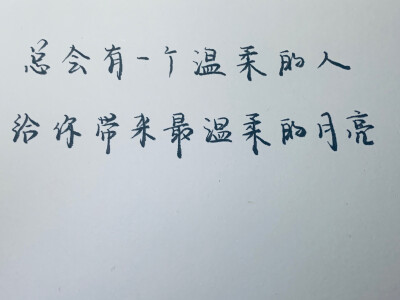 总会有一个温柔的人
给你带来最温柔的月亮